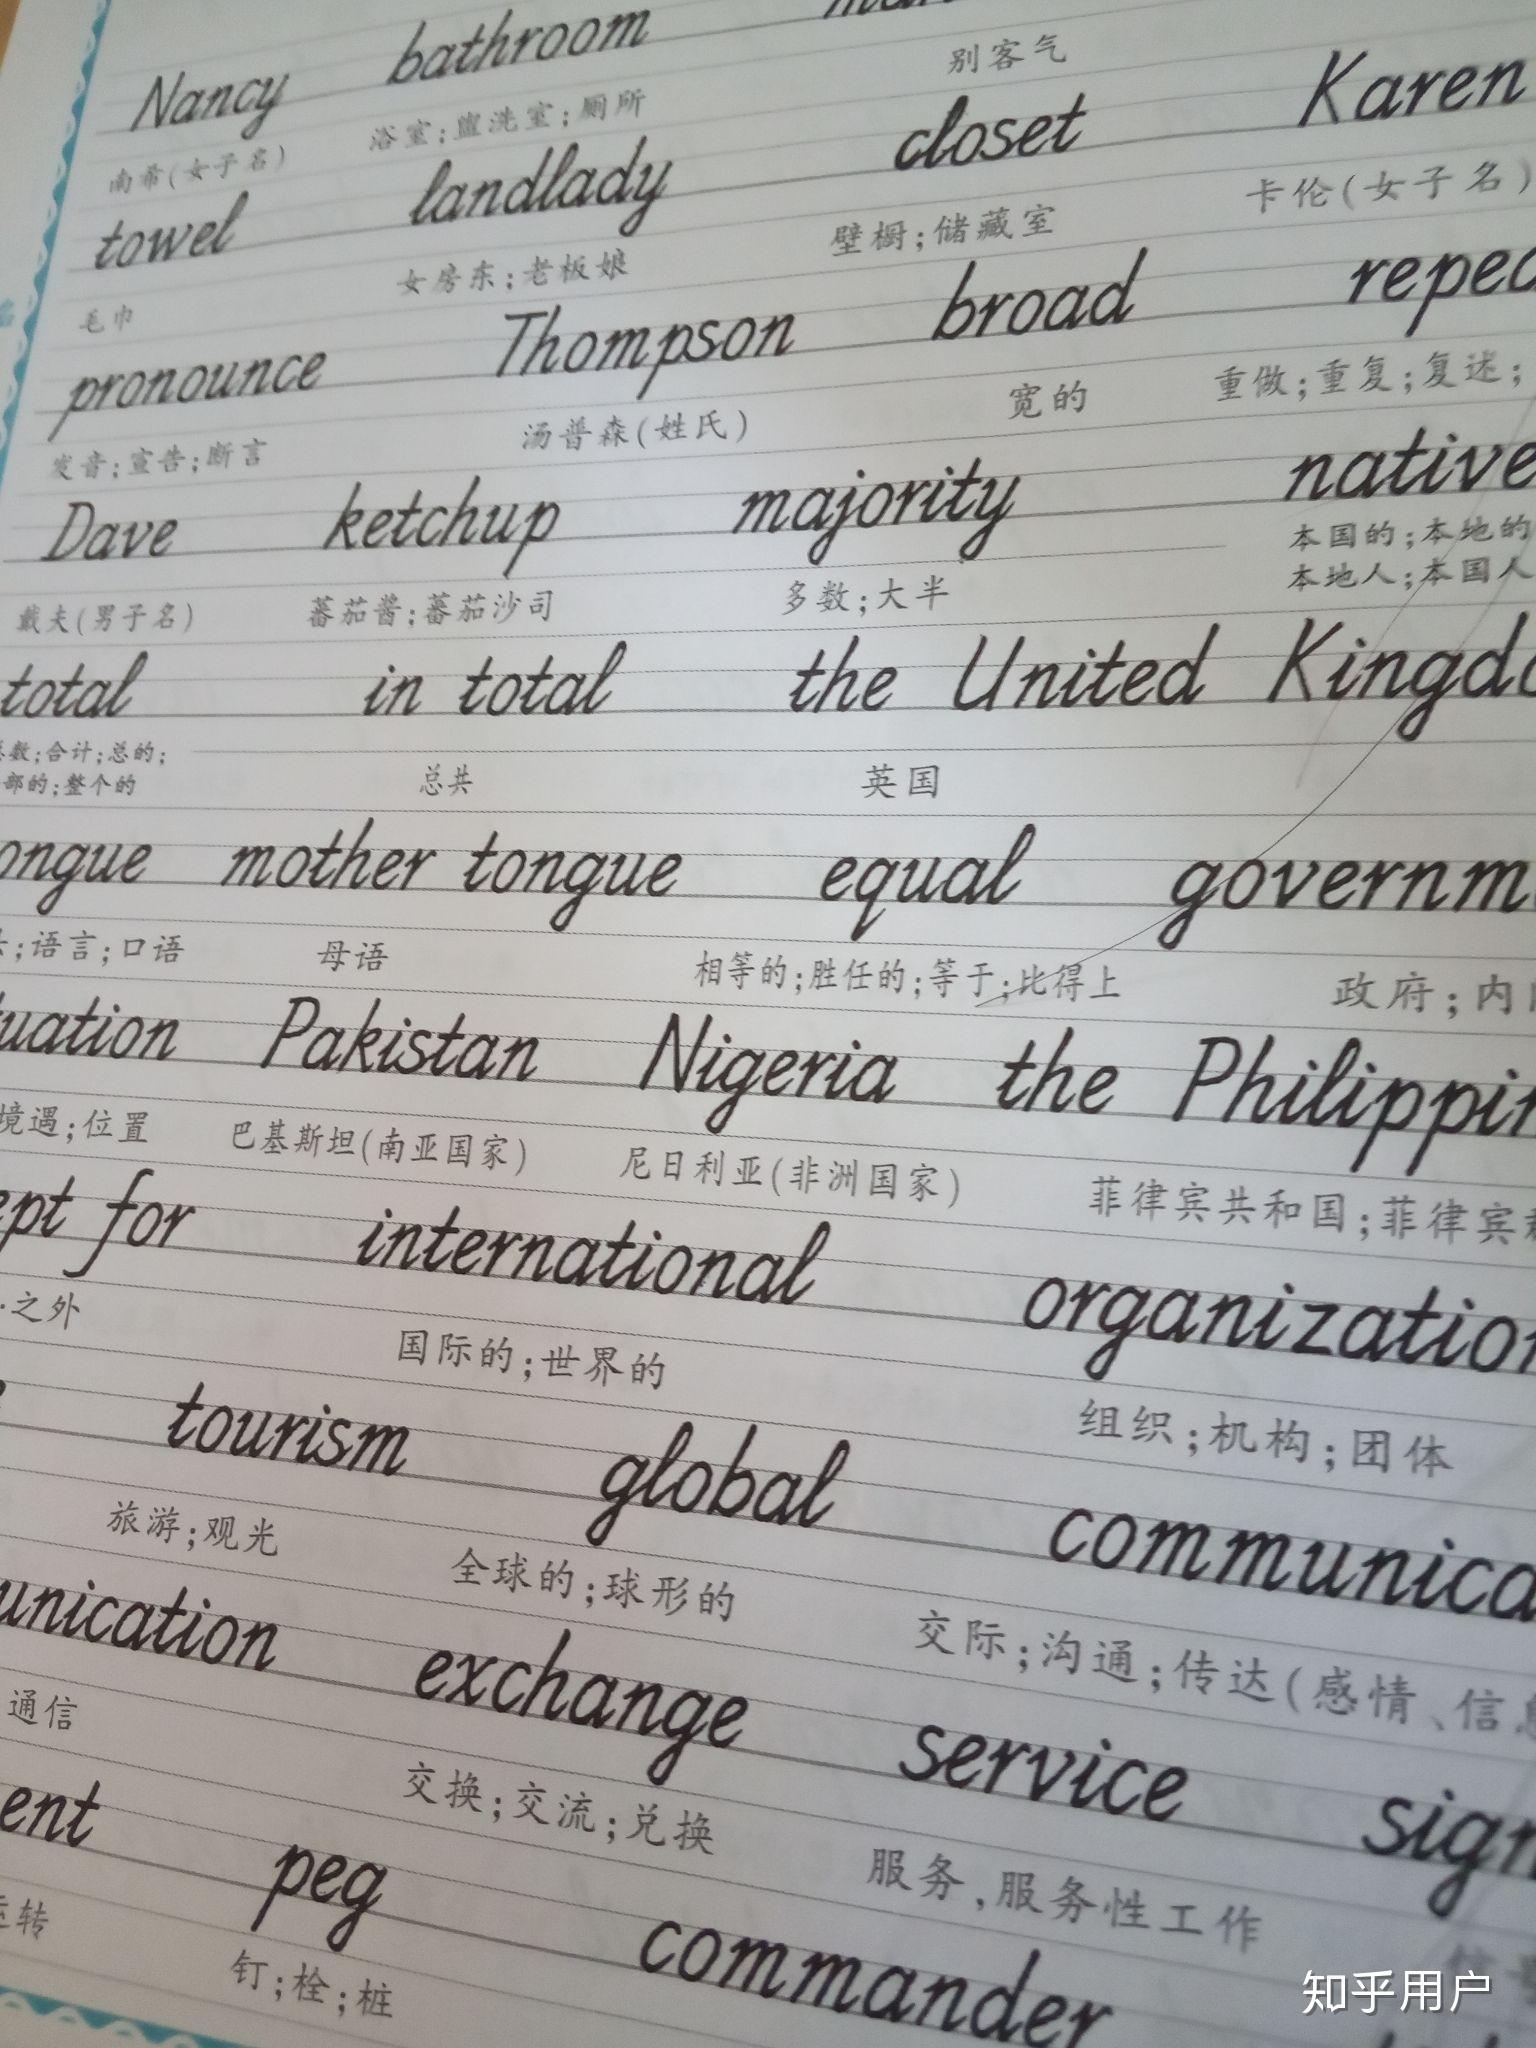 Nancy bathroom
别客气
南希(女子名) 浴室;盥洗室;厕所
towel landlady closet Karen
毛巾 女房东;老板娘 壁橱;储藏室 卡伦(女子名)
pronounce Thompson broad
发音;宣告;断言 汤普森(姓氏) 宽的 重做;重复;复述;
Dave ketchup majority native
戴夫(男子名) 蕃茄酱;蕃茄沙司 多数;大半 本国的;本地的
本地人;本国人
total in total the United
数;合计;总的;
部的;整个的 总共 英国
mother tongue equal
;语言;口语 母语 相等的;胜任的;等于;比得上 政府;内
Pakistan Nigeria the
境遇;位置 巴基斯坦(南亚国家) 尼日利亚(非洲国家) 菲律宾共和国;菲律宾
for international
之外 国际的;世界的 组织;机构;团体
tourism global
旅游;观光 全球的;球形的 交际;沟通;传达(感情、信息
exchange service
通信 交换;交流;兑换 服务,服务性工作
peg commander
转 钉;栓;桩
知乎用户